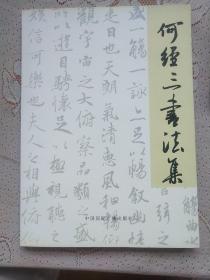 何經三書法集
一觴一詠亦足以暢敘幽
是日也天朗氣清惠風和暢仰
觀宇宙之大俯察品類之盛
所以遊目騁懷足以極視聽之
娛信可樂也夫人之相與俯仰